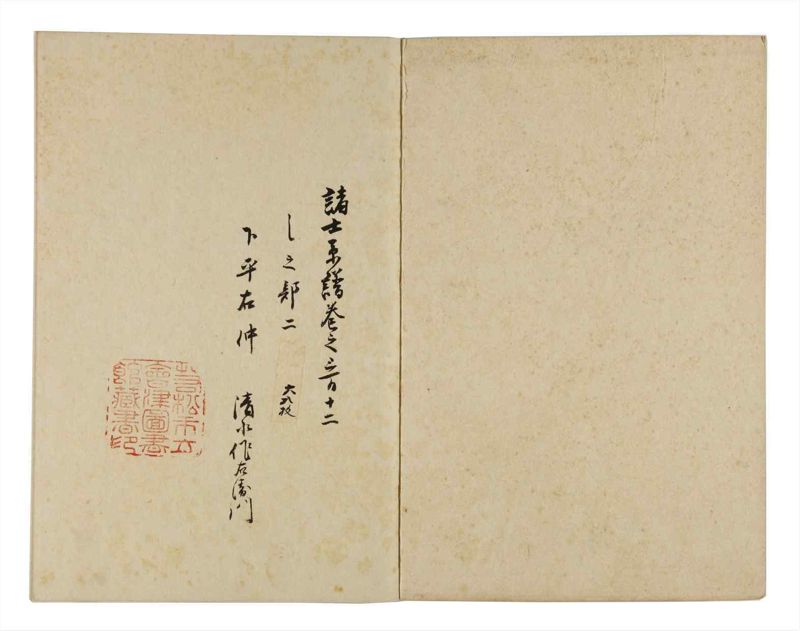 諸士系譜巻之三百十二
し之部二
下平右仲
清水作右衛門
若松市立
會津圖書
館藏書印